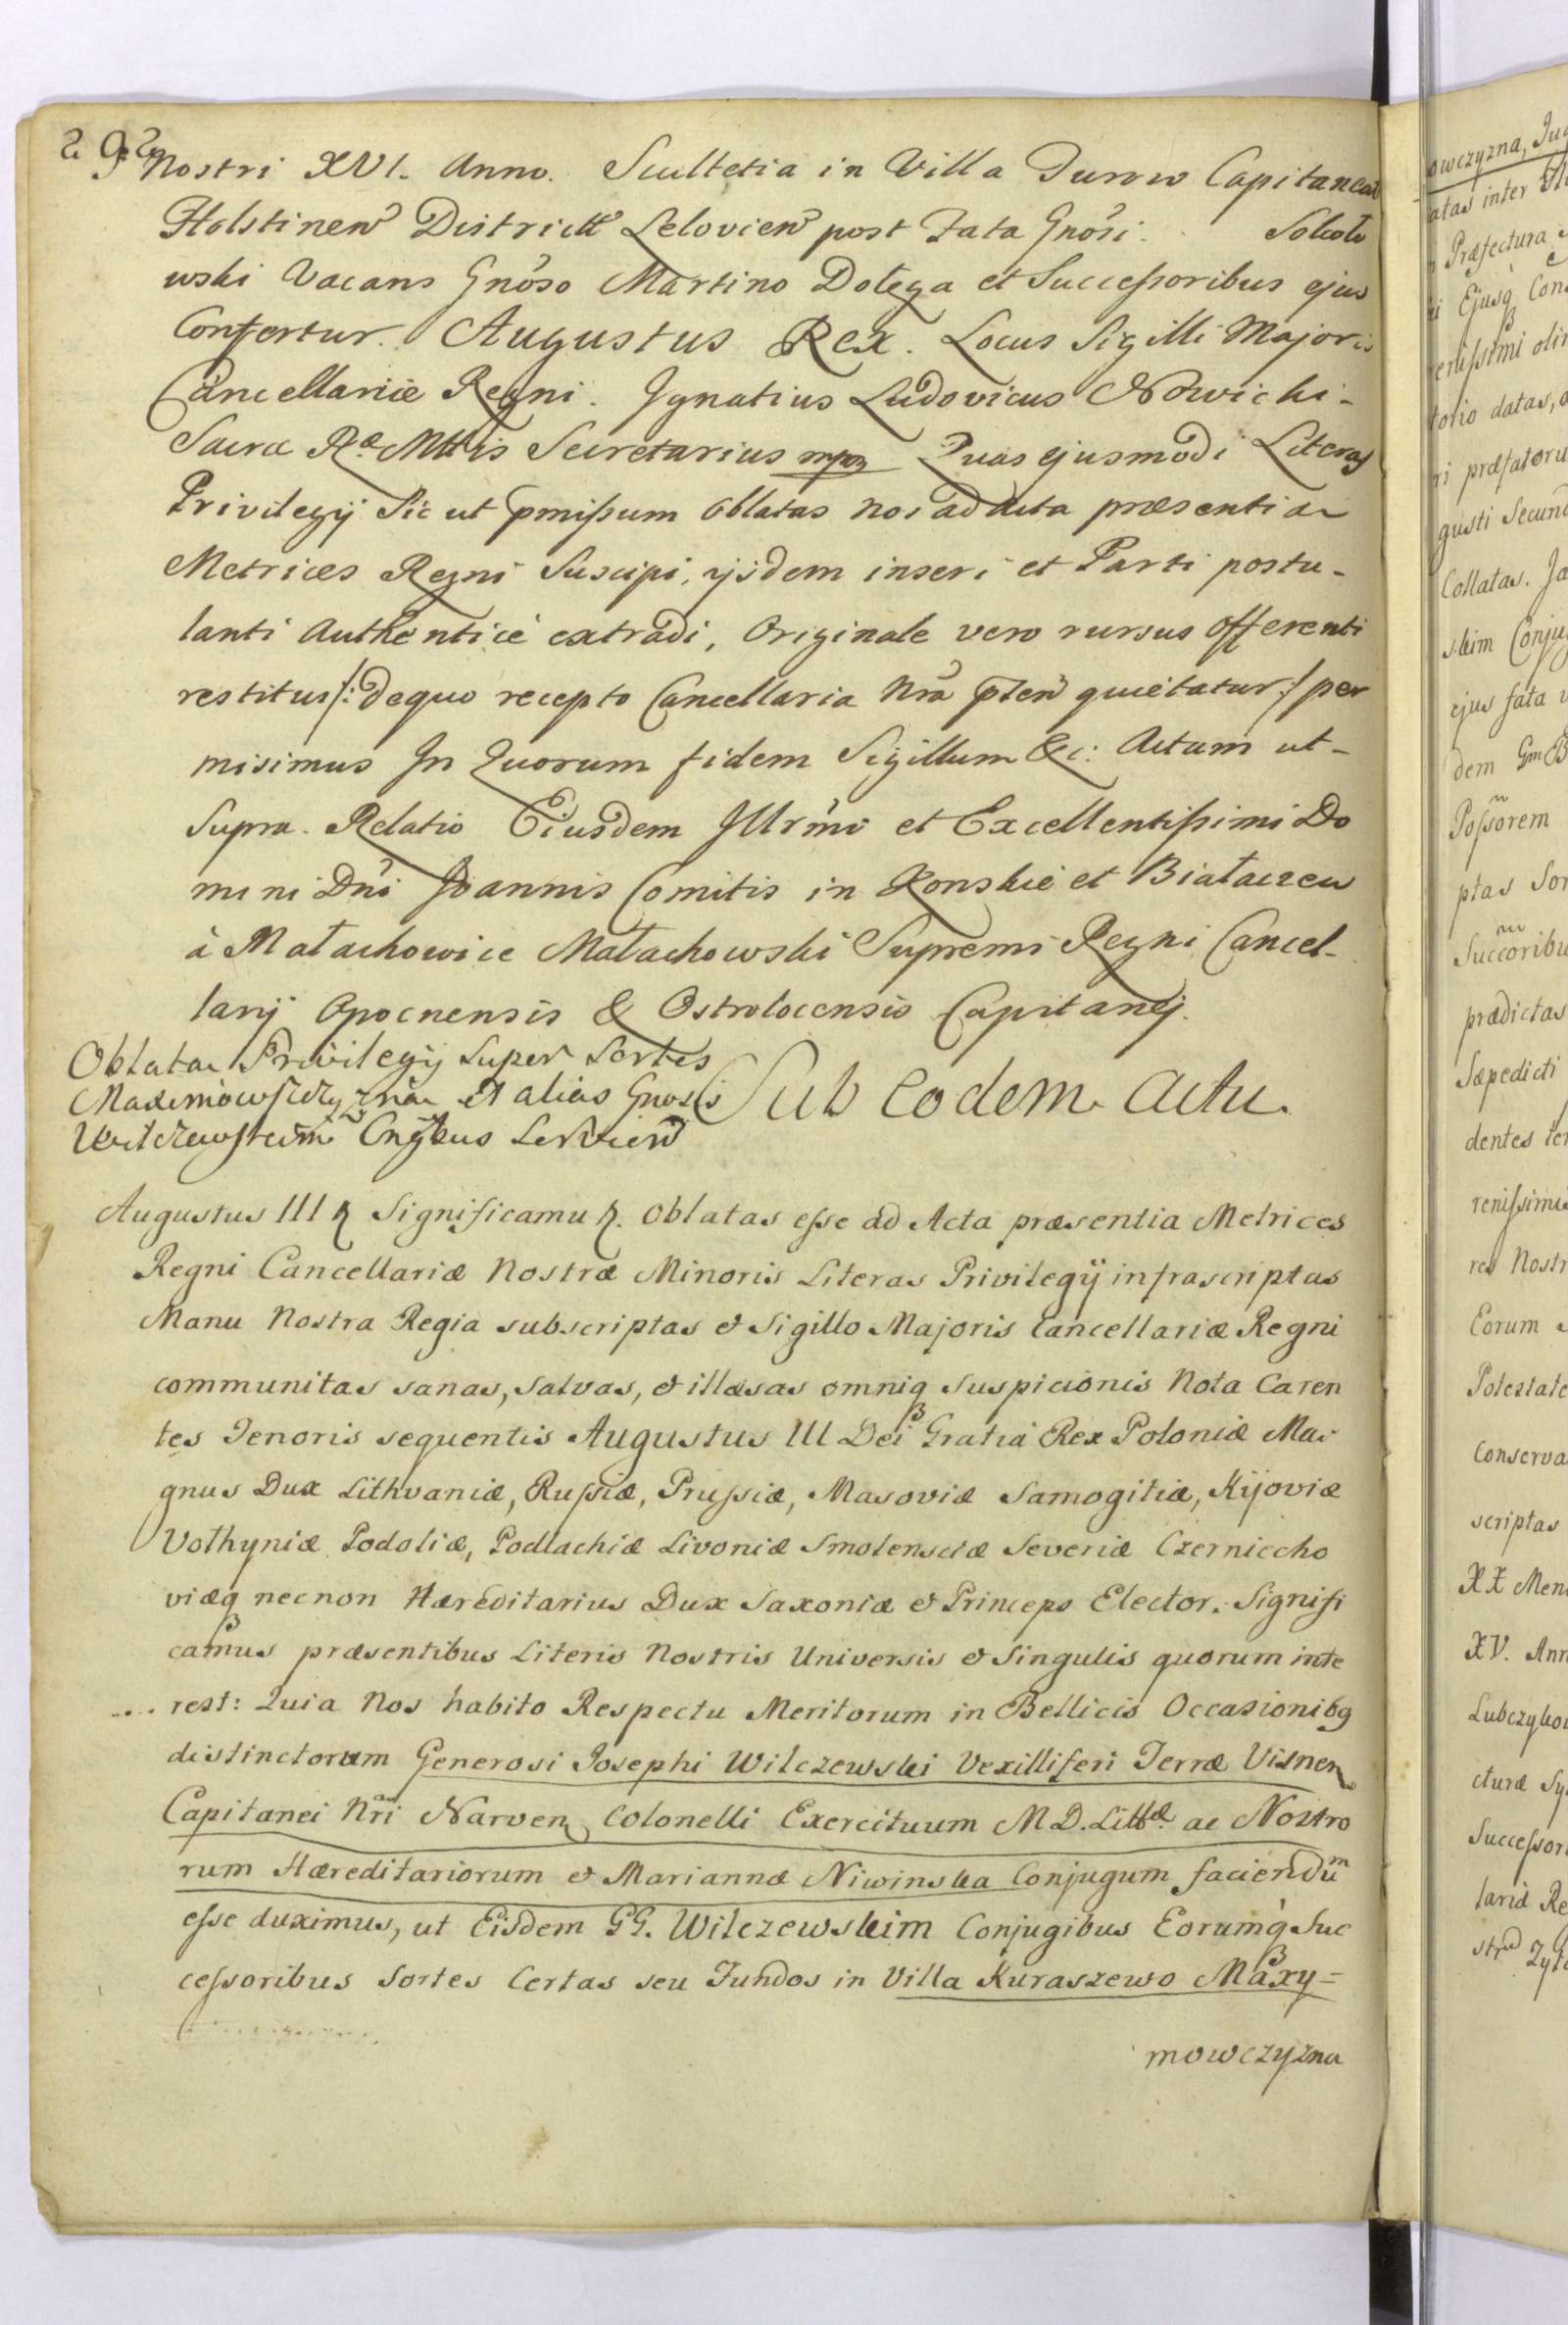 292
Nostri XVI. Anno. Scultetia in Villa Turow Capitaneat
Holstinen Districtt Lelovien post Fata Gnosi. Sokoło
wski Vacans Gnoso Martino Dołęga et Succeſsoribus ejus
Confertur. Augustus Rex. Locus Sigilli Majoris
Cancellariæ Regni. Ignatius Ludovicus Nowicki -
Sacræ Ræ Mttis Secretarius mpa Quas ejusmodi Literas
Privilegij Sic ut pmiſsum oblatas nos ad Acta præsentia
Metrices Regni Suscipi, ijsdem inseri et Parti postu-
lanti Authenticè extradi, Originale vero rursus offerenti
restitui /: de quo recepto Cancellaria Nra pten quietatur :/ per
misimus In Quorum fidem Sigillum &c: Actum ut-
Supra. Relatio Ejusdem Illrmi et Excellentiſsimi Do
mini Dni Joannis Comitis in Konskie et Białaczew
à Małachowice Małachowski Supremi Regni Cancel-
larij Opocnensis & Ostrolecensis Capitanej.
Oblata Privilegij Super Sortes
Maximowszczyzna et alias Gnosis
Wilczewskim Cngbus Servien
Sub eodem Actu.
Augustus III Significamus. Oblatas eſse ad Acta præsentia Metrices
Regni Cancellariæ Nostræ Minoris Literas Privilegij infrascriptas
Manu Nostra Regia subscriptas & Sigillo Majoris Cancellariæ Regni
communitas sanas, salvas, & illæsas omniq Suspicionis Nota Caren
tes Tenoris sequentis Augustus III Dei Gratia Rex Poloniæ Ma-
gnus Dux Lithvaniæ, Ruſsiæ, Pruſsiæ, Masoviæ Samogitiæ, Kijoviæ
Volhyniæ Podoliæ, Podlachiæ Livoniæ Smolensciæ Severiæ Czerniecho
viæq necnon Hæreditarius Dux Saxoniæ & Princeps Elector. Signifi
camus præsentibus Literis Nostris Universis & Singulis quorum inte
rest: Quia Nos habito Respectu Meritorum in Bellicis Occasionibg
distinctorum Generosi Josephi Wilczewski Vexilliferi Terræ Visnen
Capitanei Nri Narven Colonelli Exercituum M. D. Littæ. ac Nostro
rum Hæreditariorum & Mariannæ Niwinska Conjugum faciendum
eſse duximus, ut Eisdem GG. Wilczewskim Conjugibus Eorumq Suc
ceſsoribus Sortes Certas seu Fundos in Villa Kuraszewo Maxy=
mowczyzna
owczyzna,
atas inter
Præfectura
Ejusq Con
eniſsimi olim
torio datas,
ri præfatoru
gusti Secund
Collatas. Ja
skim Conju
ejus fata
dem Gm
Poſsorem
ptas Sor
Succoribu
prædictas
Sæpedicti
dentes
reniſsimis
res Nostr
Eorum
Potestate
Conserva
scriptas
XX Men
XV. Ann
Lubczyko
cturæ Sy
Succeſsor
lariæ Re